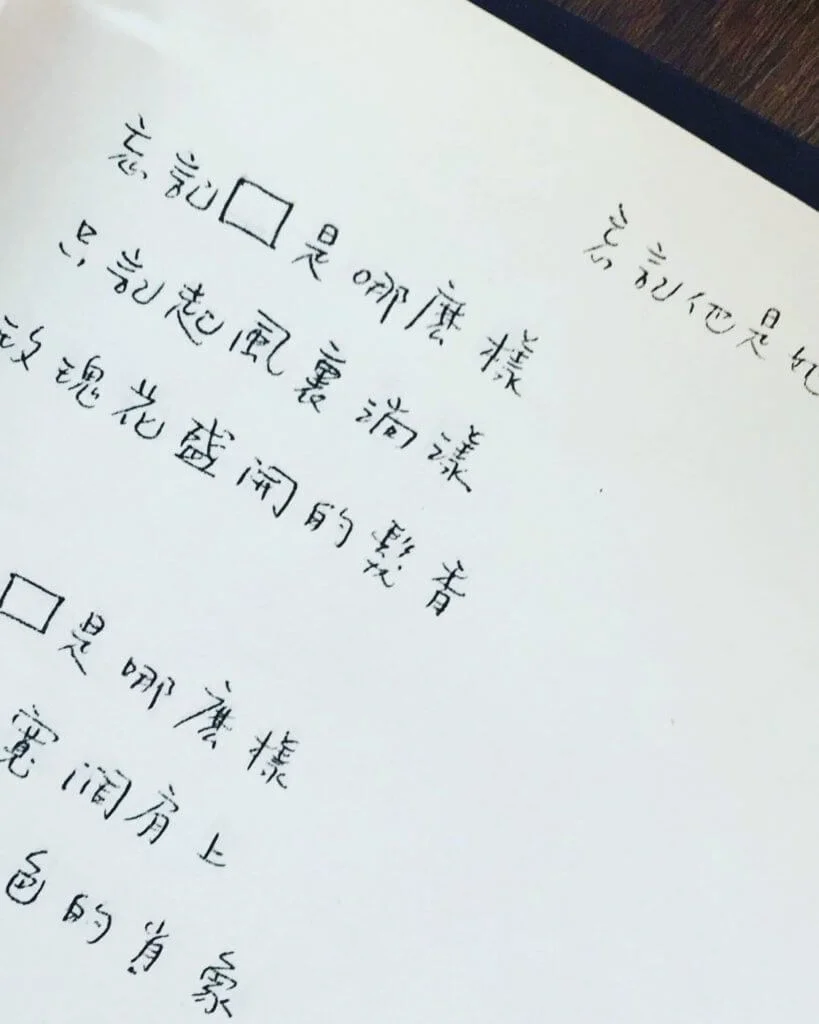 忘記□是哪麼樣
只記起風裏淌漾
玫瑰花盛開的髮香
□是哪麼樣
寬濶肩上
色的肖象
忘記他是